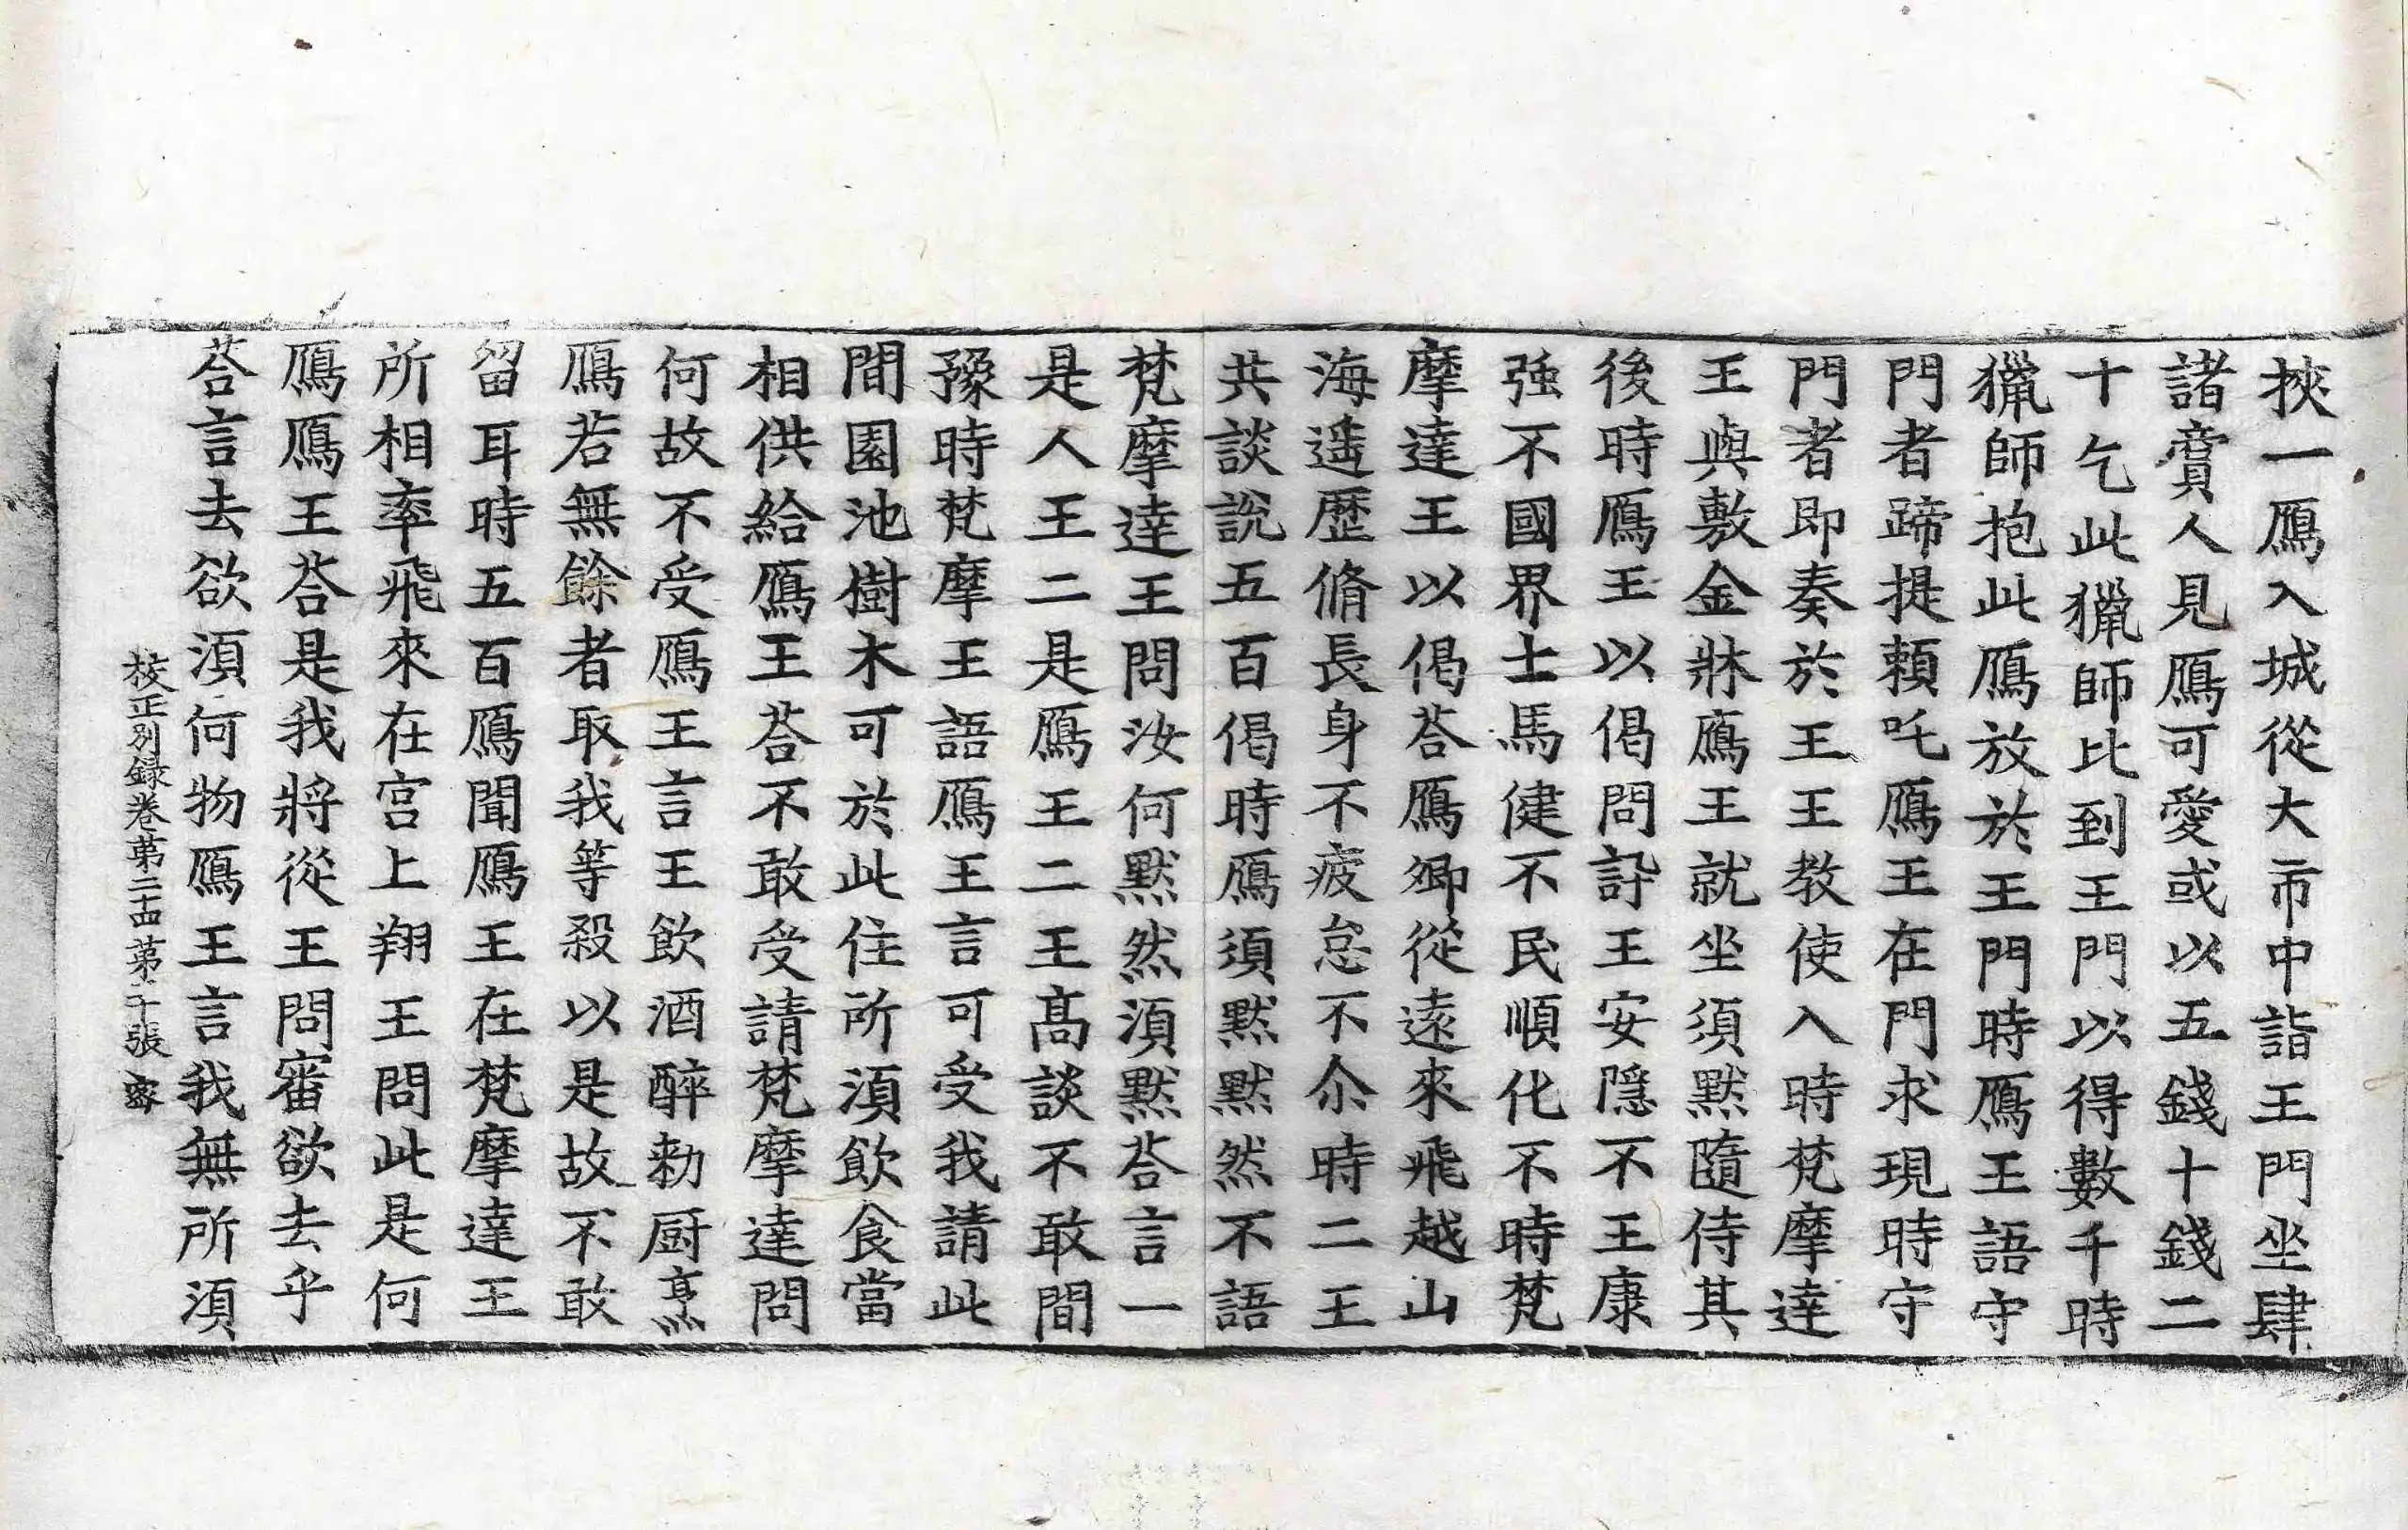 挾一鴈入城從大市中詣王門坐肆
諸賣人見鴈可愛或以五錢十錢二
十乞此獵師比到王門以得數千時
獵師抱此鴈放於王門時鴈王語守
門者蹄提頼吒鴈王在門求現時守
門者即奏於王王教使入時梵摩達
王與敷金牀鴈王就坐須黙隨侍其
後時鴈王以偈問訃王安隱不王康
強不國界士馬健不民順化不時梵
摩達王以偈荅鴈卿從遠來飛越山
海遥歷脩長身不疲怠不尒時二王
共談說五百偈時鴈須黙黙然不語
梵摩達王問汝何黙然湏黙荅言一
是人王二是鴈王二王髙談不敢間
豫時梵摩王語鴈王言可受我請此
間園池樹木可於此住所湏飲食當
相供給鴈王荅不敢受請梵摩達問
何故不受鴈王言王飲酒醉勑厨烹
鴈若無餘者取我等殺以是故不敢
留耳時五百鴈聞鴈王在梵摩達王
所相率飛來在宫上翔王問此是何
鴈鴈王荅是我將從王問審欲去乎
荅言去欲湏何物鴈王言我無所湏
校正別録卷第二十四第二十張